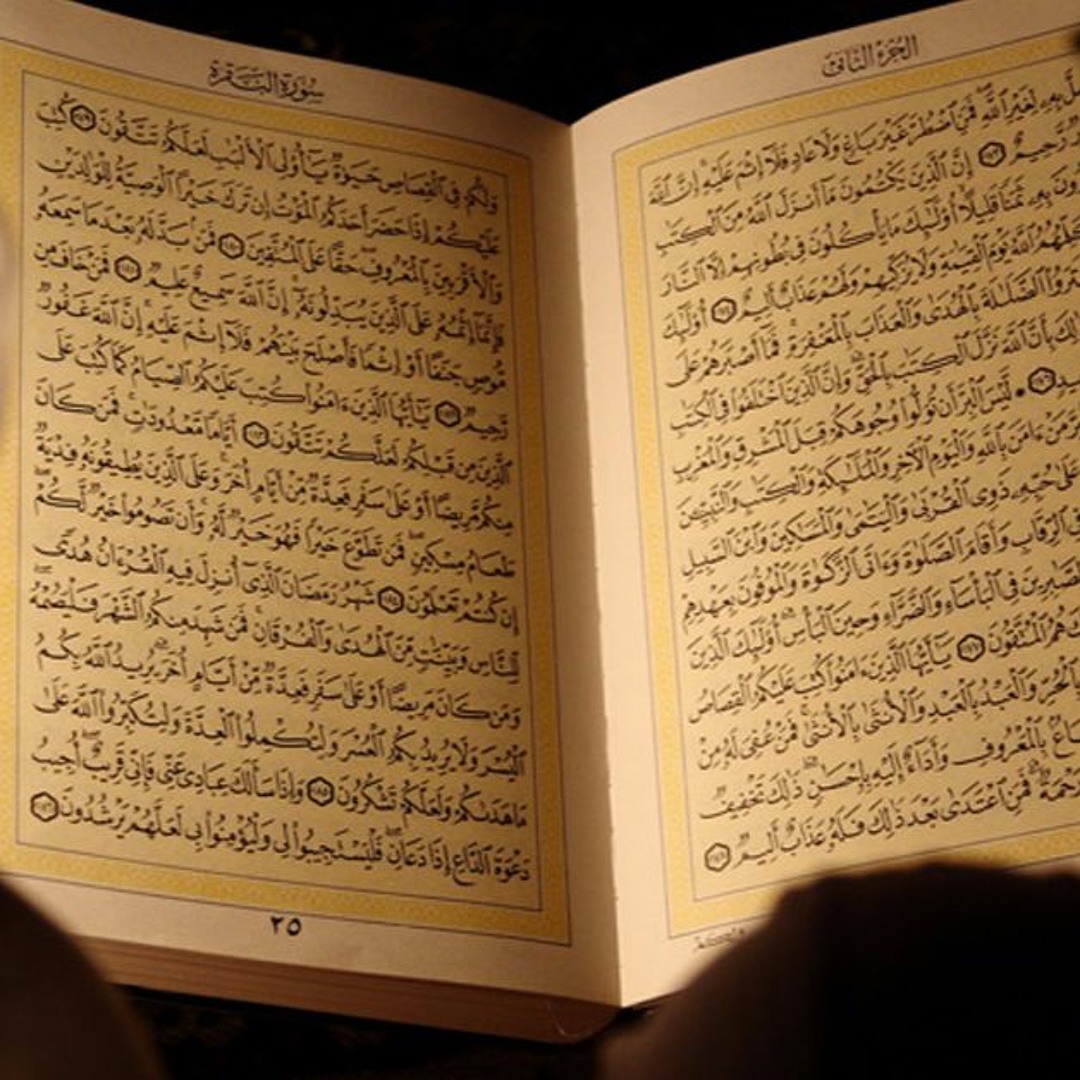 الجزء الثاني
بِهِۦ لِغَيْرِ ٱللَّهِ فَمَنِ ٱضْطُرَّ غَيْرَ بَاغٍ وَلَا عَادٍ فَلَآ إِثْمَ عَلَيْهِ إِنَّ ٱللَّهَ
رَّحِيمٌ ١٧٣ إِنَّ ٱلَّذِينَ يَكْتُمُونَ مَآ أَنزَلَ ٱللَّهُ مِنَ ٱلْكِتَٰبِ
بِهِۦ ثَمَنًا قَلِيلًا أُو۟لَٰٓئِكَ مَا يَأْكُلُونَ فِى بُطُونِهِمْ إِلَّا ٱلنَّارَ
ٱللَّهُ يَوْمَ ٱلْقِيَٰمَةِ وَلَا يُزَكِّيهِمْ وَلَهُمْ عَذَابٌ أَلِيمٌ ١٧٤ أُو۟لَٰٓئِكَ
ٱلضَّلَٰلَةَ بِٱلْهُدَىٰ وَٱلْعَذَابَ بِٱلْمَغْفِرَةِ فَمَآ أَصْبَرَهُمْ عَلَى
بِأَنَّ ٱللَّهَ نَزَّلَ ٱلْكِتَٰبَ بِٱلْحَقِّ وَإِنَّ ٱلَّذِينَ ٱخْتَلَفُوا۟ فِى ٱلْكِتَٰبِ
١٧٦ لَّيْسَ ٱلْبِرَّ أَن تُوَلُّوا۟ وُجُوهَكُمْ قِبَلَ ٱلْمَشْرِقِ وَٱلْمَغْرِبِ
مَنْ ءَامَنَ بِٱللَّهِ وَٱلْيَوْمِ ٱلْءَاخِرِ وَٱلْمَلَٰٓئِكَةِ وَٱلْكِتَٰبِ وَٱلنَّبِيِّۦنَ
عَلَىٰ حُبِّهِۦ ذَوِى ٱلْقُرْبَىٰ وَٱلْيَتَٰمَىٰ وَٱلْمَسَٰكِينَ وَٱبْنَ ٱلسَّبِيلِ
فِى ٱلرِّقَابِ وَأَقَامَ ٱلصَّلَوٰةَ وَءَاتَى ٱلزَّكَوٰةَ وَٱلْمُوفُونَ بِعَهْدِهِمْ
فِى ٱلْبَأْسَآءِ وَٱلضَّرَّآءِ وَحِينَ ٱلْبَأْسِ أُو۟لَٰٓئِكَ ٱلَّذِينَ
هُمُ ٱلْمُتَّقُونَ ١٧٧ يَٰٓأَيُّهَا ٱلَّذِينَ ءَامَنُوا۟ كُتِبَ عَلَيْكُمُ ٱلْقِصَاصُ
بِٱلْحُرِّ وَٱلْعَبْدُ بِٱلْعَبْدِ وَٱلْأُنثَىٰ بِٱلْأُنثَىٰ فَمَنْ عُفِىَ لَهُۥ مِنْ
بِٱلْمَعْرُوفِ وَأَدَآءٌ إِلَيْهِ بِإِحْسَٰنٍ ذَٰلِكَ تَخْفِيفٌ
فَمَنِ ٱعْتَدَىٰ بَعْدَ ذَٰلِكَ فَلَهُۥ عَذَابٌ أَلِيمٌ ١٧٨
سورة البقرة
وَلَكُمْ فِى ٱلْقِصَاصِ حَيَوٰةٌ يَٰٓأُو۟لِى ٱلْأَلْبَٰبِ لَعَلَّكُمْ تَتَّقُونَ ١٧٩ كُتِبَ
عَلَيْكُمْ إِذَا حَضَرَ أَحَدَكُمُ ٱلْمَوْتُ إِن تَرَكَ خَيْرًا ٱلْوَصِيَّةُ لِلْوَٰلِدَيْنِ
وَٱلْأَقْرَبِينَ بِٱلْمَعْرُوفِ حَقًّا عَلَى ٱلْمُتَّقِينَ ١٨٠ فَمَنۢ بَدَّلَهُۥ بَعْدَمَا سَمِعَهُۥ
فَإِنَّمَآ إِثْمُهُۥ عَلَى ٱلَّذِينَ يُبَدِّلُونَهُۥٓ إِنَّ ٱللَّهَ سَمِيعٌ عَلِيمٌ ١٨١ فَمَنْ خَافَ مِن
مُّوصٍ جَنَفًا أَوْ إِثْمًا فَأَصْلَحَ بَيْنَهُمْ فَلَآ إِثْمَ عَلَيْهِ إِنَّ ٱللَّهَ غَفُورٌ
رَّحِيمٌ ١٨٢ يَٰٓأَيُّهَا ٱلَّذِينَ ءَامَنُوا۟ كُتِبَ عَلَيْكُمُ ٱلصِّيَامُ كَمَا كُتِبَ عَلَى
ٱلَّذِينَ مِن قَبْلِكُمْ لَعَلَّكُمْ تَتَّقُونَ ١٨٣ أَيَّامًا مَّعْدُودَٰتٍ فَمَن كَانَ
مِنكُم مَّرِيضًا أَوْ عَلَىٰ سَفَرٍ فَعِدَّةٌ مِّنْ أَيَّامٍ أُخَرَ وَعَلَى ٱلَّذِينَ يُطِيقُونَهُۥ فِدْيَةٌ
طَعَامُ مِسْكِينٍ فَمَن تَطَوَّعَ خَيْرًا فَهُوَ خَيْرٌ لَّهُۥ وَأَن تَصُومُوا۟ خَيْرٌ لَّكُمْ
إِن كُنتُمْ تَعْلَمُونَ ١٨٤ شَهْرُ رَمَضَانَ ٱلَّذِىٓ أُنزِلَ فِيهِ ٱلْقُرْءَانُ هُدًى
لِّلنَّاسِ وَبَيِّنَٰتٍ مِّنَ ٱلْهُدَىٰ وَٱلْفُرْقَانِ فَمَن شَهِدَ مِنكُمُ ٱلشَّهْرَ فَلْيَصُمْهُ
وَمَن كَانَ مَرِيضًا أَوْ عَلَىٰ سَفَرٍ فَعِدَّةٌ مِّنْ أَيَّامٍ أُخَرَ يُرِيدُ ٱللَّهُ بِكُمُ
ٱلْيُسْرَ وَلَا يُرِيدُ بِكُمُ ٱلْعُسْرَ وَلِتُكْمِلُوا۟ ٱلْعِدَّةَ وَلِتُكَبِّرُوا۟ ٱللَّهَ عَلَىٰ
مَا هَدَىٰكُمْ وَلَعَلَّكُمْ تَشْكُرُونَ ١٨٥ وَإِذَا سَأَلَكَ عِبَادِى عَنِّى فَإِنِّى قَرِيبٌ أُجِيبُ
دَعْوَةَ ٱلدَّاعِ إِذَا دَعَانِ فَلْيَسْتَجِيبُوا۟ لِى وَلْيُؤْمِنُوا۟ بِى لَعَلَّهُمْ يَرْشُدُونَ ١٨٦
٢٥